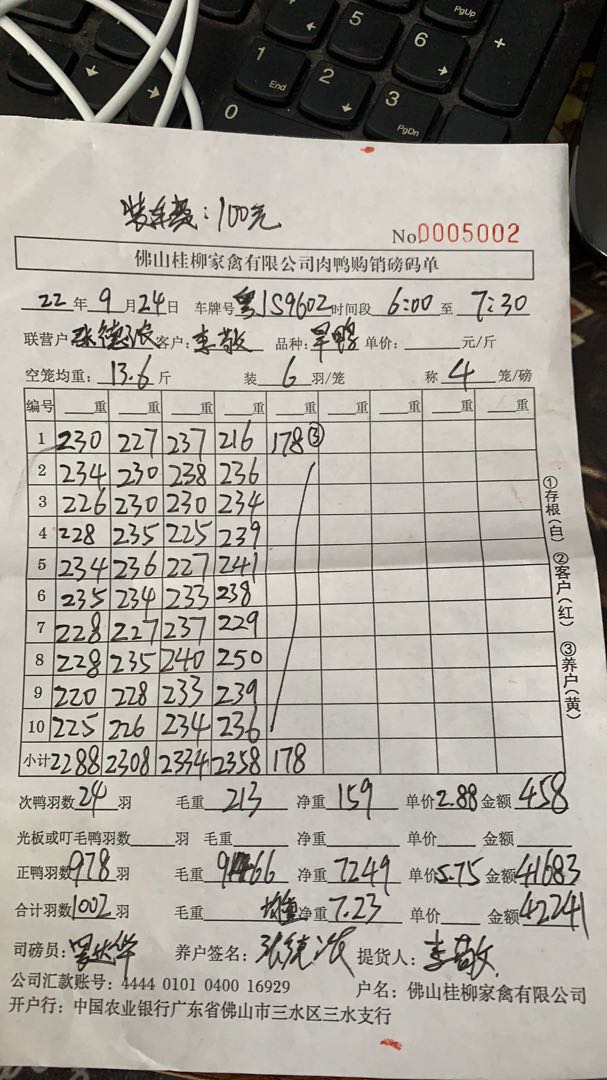 5
6
+
PgUp
1
End
2
3
PgDn
0
装车费：100元
No 0005002
佛山桂柳家禽有限公司肉鸭购销磅码单
22 年 9 月 24 日 车牌号 粤JS9602 时间段 6:00 至 7:30
联营户 张德浓 客户：李敬 品种：旱鸭 单价：______元/斤
空笼均重：13.6 斤 装 6 羽/笼 称 4 笼/磅
编号 ___重 ___重 ___重 ___重 ___重 ___重 ___重 ___重 ___重
1 230 227 237 216 178③
2 234 230 238 236
3 226 230 230 234
4 228 235 225 239
5 234 236 227 241
6 235 234 233 238
7 228 227 237 229
8 228 235 240 250
9 220 228 233 239
10 225 226 234 236
小计 2288 2308 2334 2358 178
①存根（白） ②客户（红） ③养户（黄）
次鸭羽数 24 羽 毛重 213 净重 159 单价 2.88 金额 458
光板或叮毛鸭羽数____羽 毛重____ 净重____ 单价____ 金额____
正鸭羽数 978 羽 毛重 9466 净重 7249 单价 5.75 金额 41683
合计羽数 1002 羽 毛重 均重 净重 7.23 单价____ 金额 42241
司磅员： 养户签名：张德浓 提货人：李敬
公司汇款账号：4444 0101 0400 16929 户名：佛山桂柳家禽有限公司
开户行：中国农业银行广东省佛山市三水区三水支行